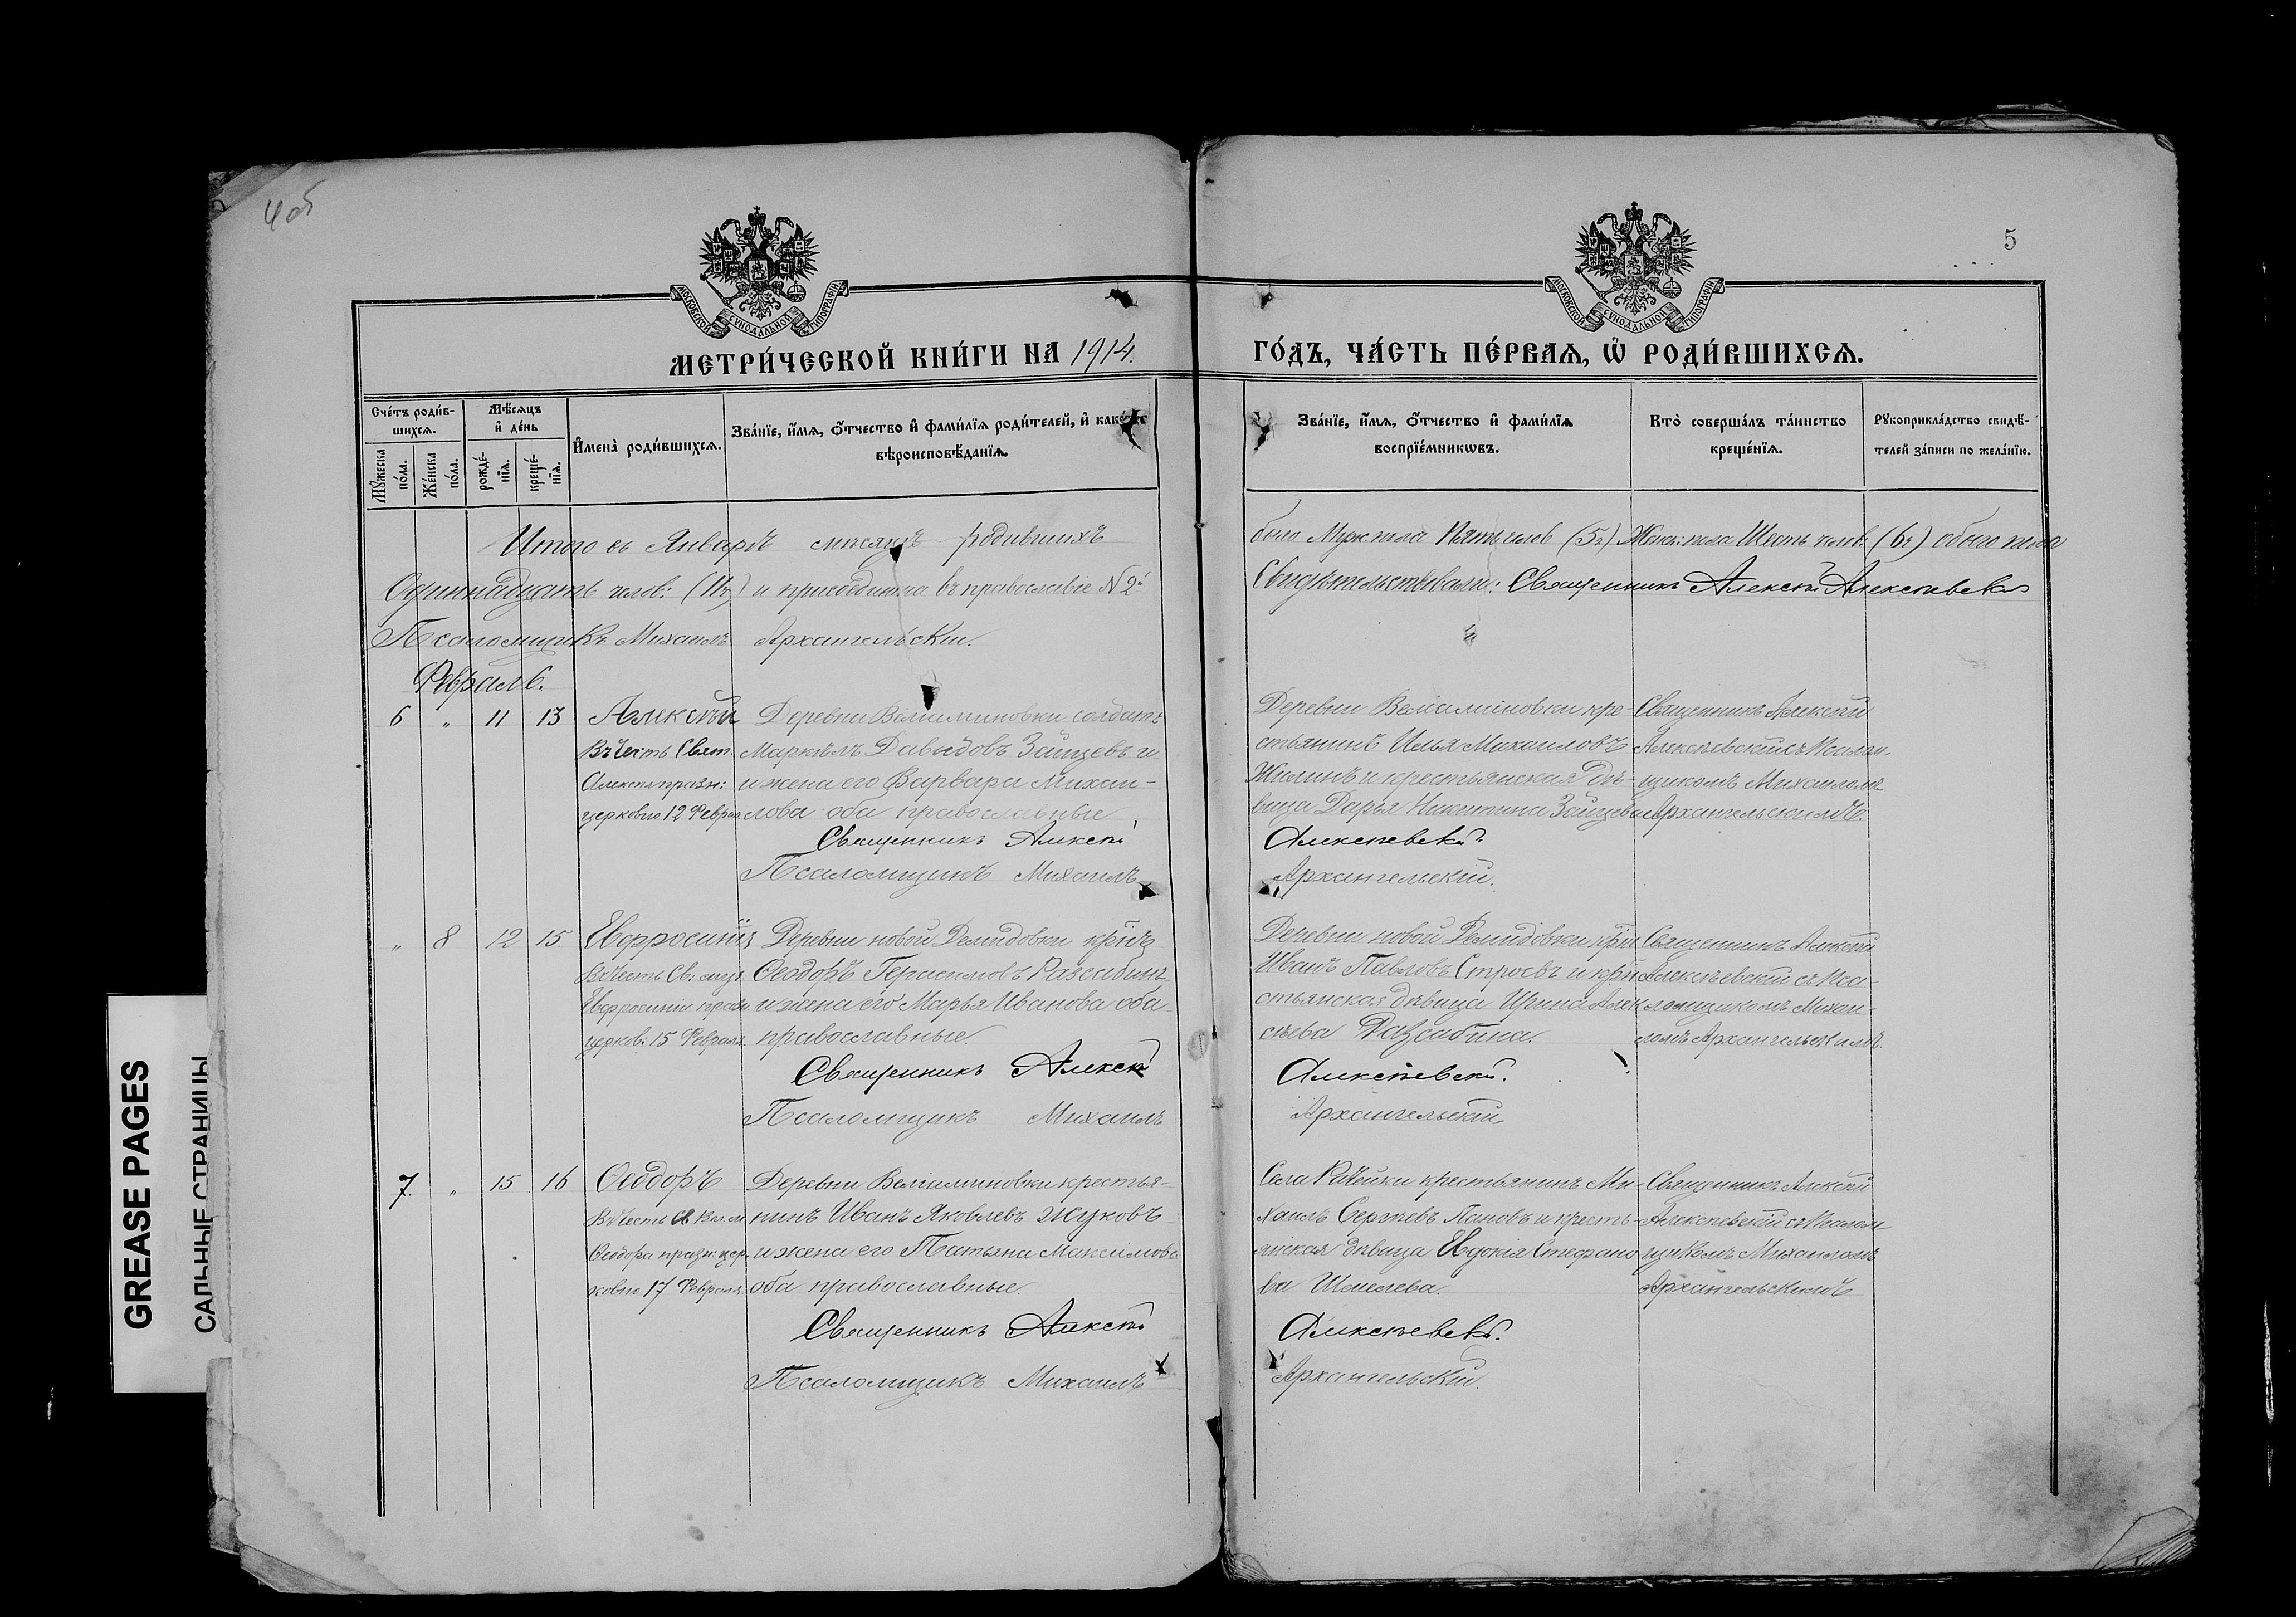 4 об
5
МОСКОВСКОЙ СѴНОДАЛЬНОЙ ТИПОГРАФІИ
МОСКОВСКОЙ СѴНОДАЛЬНОЙ ТИПОГРАФІИ
МЕТРИ́ЧЕСКОЙ КНИ́ГИ НА 1914. ГО́ДЪ, ЧА́СТЬ ПЕ́РВАѦ, Ѡ҆ РОДИ́ВШИХСѦ.
Сче́тъ роди́в-
шихсѧ.
Мѣ́сѧцъ
и҆ де́нь
Мꙋ́жеска по́ла.
Же́нска по́ла.
рожде́-
нїѧ.
креще́-
нїѧ.
И҆мена̀ роди́вшихсѧ.
Зва́нїе, и҆́мѧ, ѻ҆́тчество и҆ фами́лїѧ роди́телей, и҆ како́гѡ
вѣроисповѣ́данїѧ.
Зва́нїе, и҆́мѧ, ѻ҆́тчество и҆ фами́лїѧ
воспрїе́мникѡвъ.
Кто̀ соверша́лъ та́инство
креще́нїѧ.
Рꙋкоприкла́дство свидѣ́-
телей за́писи по жела́нїю.
Итого въ Январѣ мѣсяцѣ родившихъ было Муж: пола Пять челов (5ъ) Женск: пола Шесть челов. (6ъ) обоего пола
Одиннадцать челов: (11ъ) и присоединена въ православіе №2й Свидѣтельствовали: Священникъ Алексѣй Алексѣевскій
Псаломщикъ Михаилъ Архангельскій.
Февраль.
6 " 11 13
Алексѣй
Въ честь Свят.
Алексѣя празн:
церковію 12 Феврал
Деревни Веліаминовки солдатъ
Маркеллъ Давыдовъ Зайцевъ и
и жена его Варвара Михаи-
лова оба православные
Священникъ Алексѣй
Псаломщикъ Михаилъ
Деревни Веліаминовки кре-
стьянинъ Илья Михаиловъ
Жилинъ и крестьянская дѣ-
вица Дарья Никитина Зайцева
Алексѣевскій.
Архангельскій.
Священникъ Алексѣй
Алексѣевскій съ Псалом-
щикомъ Михаиломъ
Архангельскимъ.
" 8 12 15
Евфросинія
Въ честь Св: муч.
Евфросиніи празн
церков. 15 Февраля.
Деревни новой Демидовки кр̃нъ
Ѳеодоръ Герасимовъ Разсабинъ
и жена его Марья Иванова оба
православные.
Священникъ Алексѣй
Псаломщикъ Михаилъ
Деревни новой Демидовки кр̃нъ
Иванъ Павловъ Строевъ и кре
стьянская дѣвица Ирина Алек
сѣева Разсабина.
Алексѣевскій.
Архангельскій
Священникъ Алексѣй
Алексѣевскій съ Пса-
ломщикомъ Михаи-
ломъ Архангельскимъ.
7. " 15 16
Ѳеодоръ
Въ честь Св Вел.м
Ѳеодора празн: цер.
ковію 17 Февраля.
Деревни Веліаминовки крестья-
нинъ Иванъ Яковлевъ Жуковъ
и жена его Татьяна Максимова
оба православные.
Священникъ Алексѣй
Псаломщикъ Михаилъ
Села Рачейки крестьянинъ Ми-
хаилъ Сергѣевъ Пановъ и кресть-
янская дѣвица Евдокія Стефано
ва Шмелева.
Алексѣевскій.
Архангельскій.
Священникъ Алексѣй
Алексѣевскій съ Псалом
щикомъ Михаиломъ
Архангельскимъ
GREASE PAGES
САЛЬНЫЕ СТРАНИЦЫ